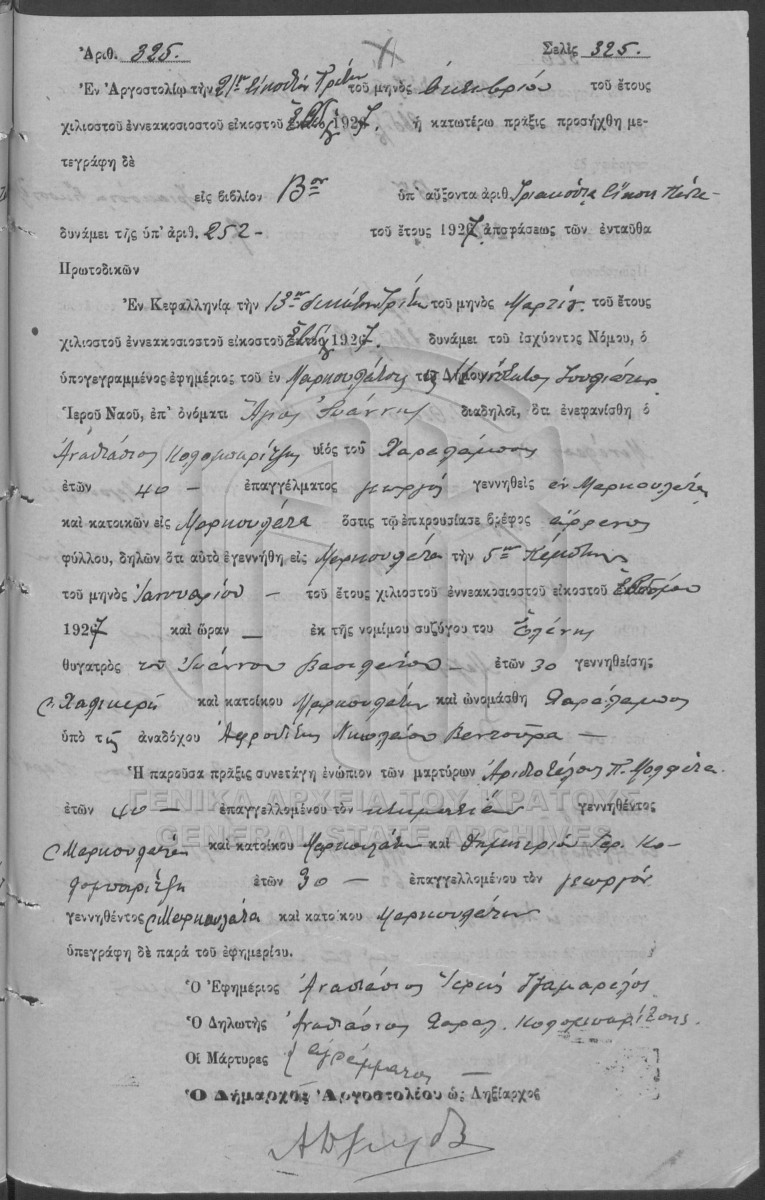 Ἀριθ. 325. Σελὶς 325.
Ἐν Ἀργοστολίῳ τὴν 21ην τοῦ μηνὸς Ὀκτωβρίου τοῦ ἔτους
χιλιοστοῦ ἐννεακοσιοστοῦ εἰκοστοῦ 1927, ἡ κατωτέρω πρᾶξις προσήχθη με-
τεγράφη δὲ
εἰς βιβλίον Βον ὑπ' αὔξοντα ἀριθ. Τριακόσια Εἴκοσι Πέντε
δυνάμει τῆς ὑπ' ἀριθ. 252 – τοῦ ἔτους 1927 ἀποφάσεως τῶν ἐνταῦθα
Πρωτοδικῶν
Ἐν Κεφαλληνίᾳ τὴν 13ην δεκάτην Τρίτην τοῦ μηνὸς Μαρτίου τοῦ ἔτους
χιλιοστοῦ ἐννεακοσιοστοῦ εἰκοστοῦ 1927. δυνάμει τοῦ ἰσχύοντος Νόμου, ὁ
ὑπογεγραμμένος ἐφημέριος τοῦ ἐν Μαρκουλάτοις
Ἱεροῦ Ναοῦ, ἐπ' ὀνόματι Ἅγιος Ἰωάννης διαδηλοῖ, ὅτι ἐνεφανίσθη ὁ
Ἀναστάσιος Κολομπαρίτζης υἱὸς τοῦ Χαραλάμπους
ἐτῶν 40 – ἐπαγγέλματος γεωργὸς γεννηθεὶς ἐν Μαρκουλάτα
καὶ κατοικῶν εἰς Μαρκουλάτα ὅστις τῷ ἐπαρουσίασε βρέφος ἄρρενος
φύλλου, δηλῶν ὅτι αὐτὸ ἐγεννήθη εἰς Μαρκουλάτα τὴν 5ην Πέμπτην
τοῦ μηνὸς Ἰανουαρίου – τοῦ ἔτους χιλιοστοῦ ἐννεακοσιοστοῦ εἰκοστοῦ ἑβδόμου
1927 καὶ ὥραν – ἐκ τῆς νομίμου συζύγου του Ἑλένης
θυγατρὸς τοῦ Ἰωάννου Βασιλάτου – ἐτῶν 30 γεννηθείσης
Χαλικερῆ καὶ κατοίκου Μαρκουλάτων καὶ ὠνομάσθη Χαράλαμπος
ὑπὸ τῆς ἀναδόχου Ἀφροδίτης Νικολάου Βεντούρα –
Ἡ παροῦσα πρᾶξις συνετάγη ἐνώπιον τῶν μαρτύρων Ἀριστοτέλους Π. Μολφέτα
ΓΕΝΙΚΑ ΑΡΧΕΙΑ ΤΟΥ ΚΡΑΤΟΥΣ
ἐτῶν 40 – ἐπαγγελλομένου τὸν κτηματίαν γεννηθέντος
GENERAL STATE ARCHIVES
Μαρκουλάτα καὶ κατοίκου Μαρκουλάτων καὶ Δημητρίου Γερ. Κο-
λομπαρίτζη ἐτῶν 30 – ἐπαγγελλομένου τὸν γεωργόν
γεννηθέντος Μαρκουλάτα καὶ κατοίκου Μαρκουλάτων
ὑπεγράφη δὲ παρὰ τοῦ ἐφημερίου.
Ὁ Ἐφημέριος Ἀναστάσιος Ἱερεὺς Τζαμαρέλος
Ὁ Δηλωτὴς Ἀναστάσιος Χαραλ. Κολομπαρίτσης.
Οἱ Μάρτυρες ἀγράμματοι –
Ὁ Δήμαρχος Ἀργοστολίου ὡς Ληξίαρχος